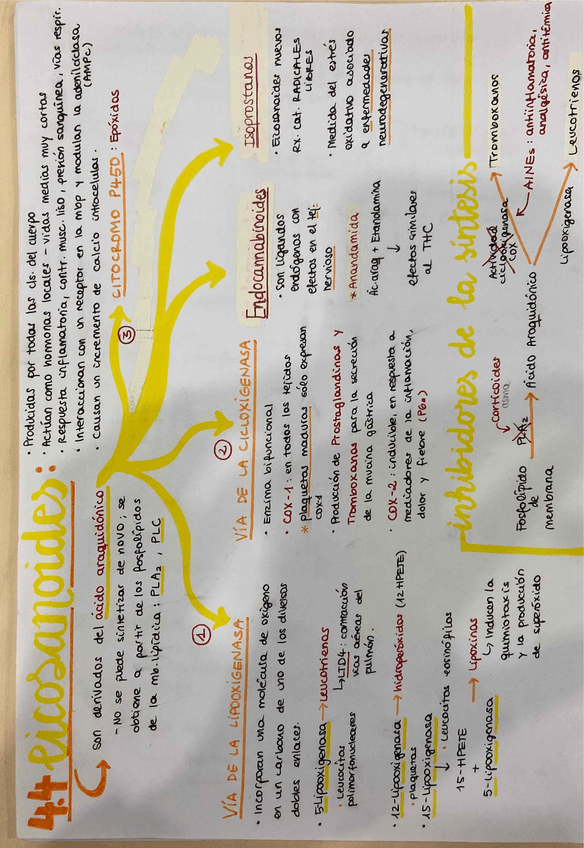 4.4 Eicosanoides:
Son derivados del ácido araquidónico
- No se puede sintetizar de novo; se
obtiene a partir de los fosfolípidos
de la mb. lipídica: PLA₂, PLC
• Producidas por todas las cls. del cuerpo
• Actúan como hormonas locales - vidas medias muy cortas
• Respuesta inflamatoria, contr. musc. liso, presión sanguínea, vías respir.
• Interaccionan con un receptor en la mbp y modulan la adenilciclasa
(AMPc)
• Causan un incremento de calcio intracelular.
①
VÍA DE LA LIPOOXIGENASA
• Incorporan una molécula de oxígeno
en un carbono de uno de los diversos
dobles enlaces.
• 5-Lipooxigenasa → leucotrienas
• Leucocitos
polimorfonucleares
↳ LTD4: contracción
vías aéreas del
pulmón.
• 12-Lipooxigenasa → hidroperóxidos (12 HPETE)
• plaquetas
• 15-Lipooxigenasa
↓ • Leucocitos eosinófilos
15-HPETE
+
5-Lipooxigenasa
→ Lipoxinas
↳ Inducen la
quimiotaxis
y la producción
de superóxido
②
VÍA DE LA CICLOXIGENASA
• Enzima bifuncional
• COX-1: en todos los tejidos
* plaquetas maduras solo expresan
COX1
• Producción de Prostaglandinas y
Tromboxanos para la secreción
de la mucina gástrica
• COX-2: inducible, en respuesta a
mediadores de la inflamación,
dolor y fiebre
③
CITOCROMO P450: Epóxidos
Endocannabinoides
• Son ligandos
endógenos con
efectos en el tej.
nervioso
* Anandamida
Ác. araq + Etanolamina
↓
efectos similares
al THC
Isoprostanos
• Eicosanoides nuevos
Rx. cat. RADICALES
LIBRES
• Medida del estrés
oxidativo asociado
a enfermedades
neurodegenerativas
inhibidores de la síntesis
Fosfolípido
de
membrana
corticoides
asma
PLA₂
→ Ácido Araquidónico
Actividad
ciclooxigenasa
COX
Tromboxanos
AINEs: antiinflamatoria,
analgésica, antitérmica
Lipooxigenasa
Leucotrienos